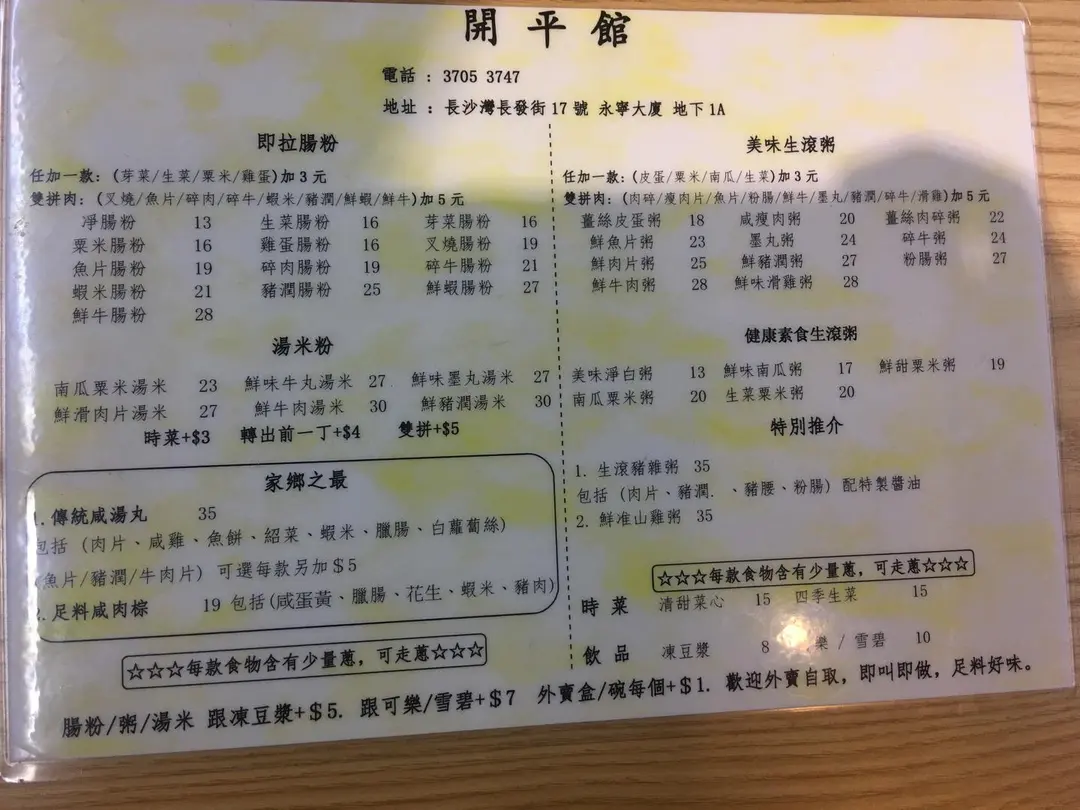 開平館
電話 : 3705 3747
地址 : 長沙灣長發街17號 永寧大廈 地下1A
即拉腸粉
任加一款: (芽菜/生菜/粟米/雞蛋)加3元
雙拼肉: (叉燒/魚片/碎肉/碎牛/蝦米/豬潤/鮮蝦/鮮牛)加5元
凈腸粉 13 生菜腸粉 16 芽菜腸粉 16
粟米腸粉 16 雞蛋腸粉 16 叉燒腸粉 19
魚片腸粉 19 碎肉腸粉 19 碎牛腸粉 21
蝦米腸粉 21 豬潤腸粉 25 鮮蝦腸粉 27
鮮牛腸粉 28
湯米粉
南瓜粟米湯米 23 鮮味牛丸湯米 27 鮮味墨丸湯米 27
鮮滑肉片湯米 27 鮮牛肉湯米 30 鮮豬潤湯米 30
時菜+$3 轉出前一丁+$4 雙拼+$5
家鄉之最
1.傳統咸湯丸 35
包括 (肉片、咸雞、魚餅、紹菜、蝦米、臘腸、白蘿蔔絲)
(魚片/豬潤/牛肉片) 可選每款另加$5
2.足料咸肉棕 19 包括(咸蛋黃、臘腸、花生、蝦米、豬肉)
☆☆☆每款食物含有少量蔥，可走蔥☆☆☆
美味生滾粥
任加一款: (皮蛋/粟米/南瓜/生菜)加3元
雙拼肉: (肉碎/瘦肉片/魚片/粉腸/鮮牛/墨丸/豬潤/碎牛/滑雞)加5元
薑絲皮蛋粥 18 咸瘦肉粥 20 薑絲肉碎粥 22
鮮魚片粥 23 墨丸粥 24 碎牛粥 24
鮮肉片粥 25 鮮豬潤粥 27 粉腸粥 27
鮮牛肉粥 28 鮮味滑雞粥 28
健康素食生滾粥
美味淨白粥 13 鮮味南瓜粥 17 鮮甜粟米粥 19
南瓜粟米粥 20 生菜粟米粥 20
特別推介
1. 生滾豬雜粥 35
包括 (肉片、豬潤.、豬腰、粉腸) 配特製醬油
2. 鮮准山雞粥 35
☆☆☆每款食物含有少量蔥，可走蔥☆☆☆
時菜 清甜菜心 15 四季生菜 15
飲品 凍豆漿 8 樂 / 雪碧 10
腸粉/粥/湯米 跟凍豆漿+$5. 跟可樂/雪碧+$7 外賣盒/碗每個+$1. 歡迎外賣自取，即叫即做，足料好味。